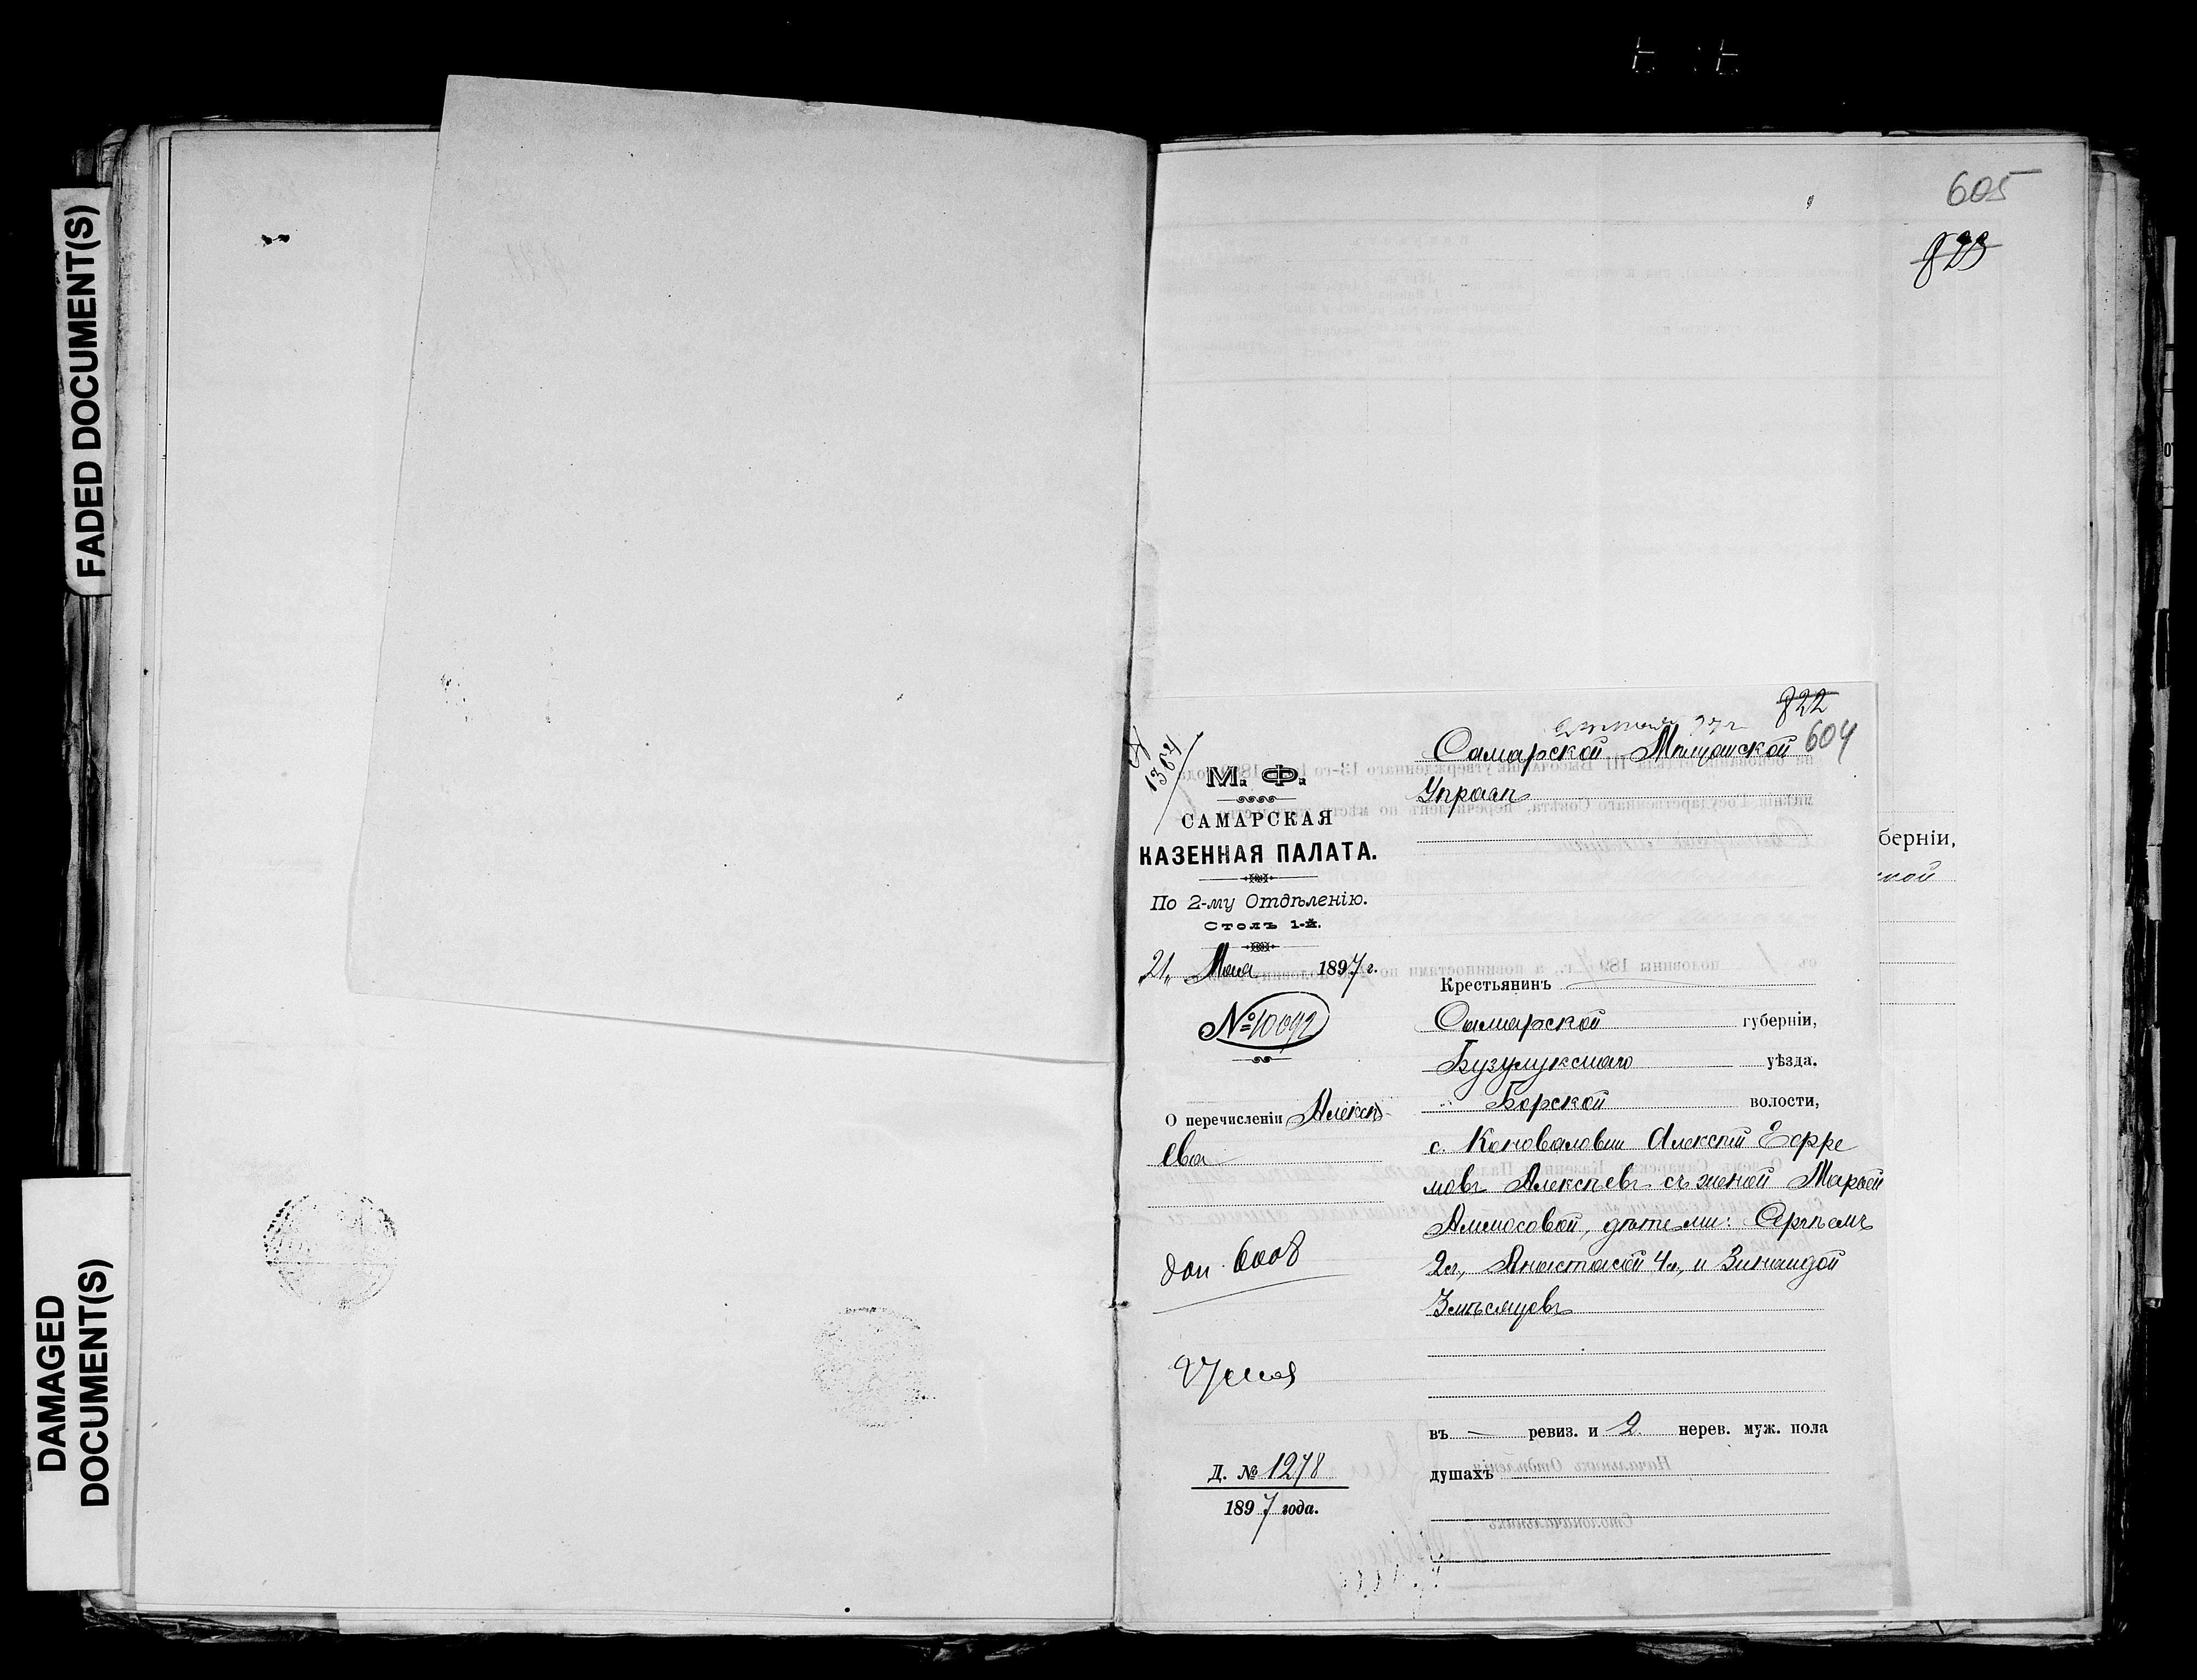 FADED DOCUMENT(S)
DAMAGED
DOCUMENT(S)
605
823
822
604
1364
М. Ф.
САМАРСКАЯ
КАЗЕННАЯ ПАЛАТА.
По 2-му Отдѣленію.
Столъ 1-й.
21 Мая 1897 г.
№ 10092
О перечисленіи Алексѣ-
ева
6008
Д. № 1278
1897 года.
Самарской Мѣщанской
Управѣ
Крестьянинъ
Самарской губерніи,
Бузулукскаго уѣзда.
Борской волости,
с. Коноваловки Алексѣй Ефре
мовъ Алексѣевъ съ женой Марьей
Аммосовой, дѣтьми: Сергѣемъ
2л, Анастасіей 4л, и Зинаидой
3 мѣсяцовъ
въ — ревиз. и 2 нерев. муж. пола
душахъ
берніи,
ской